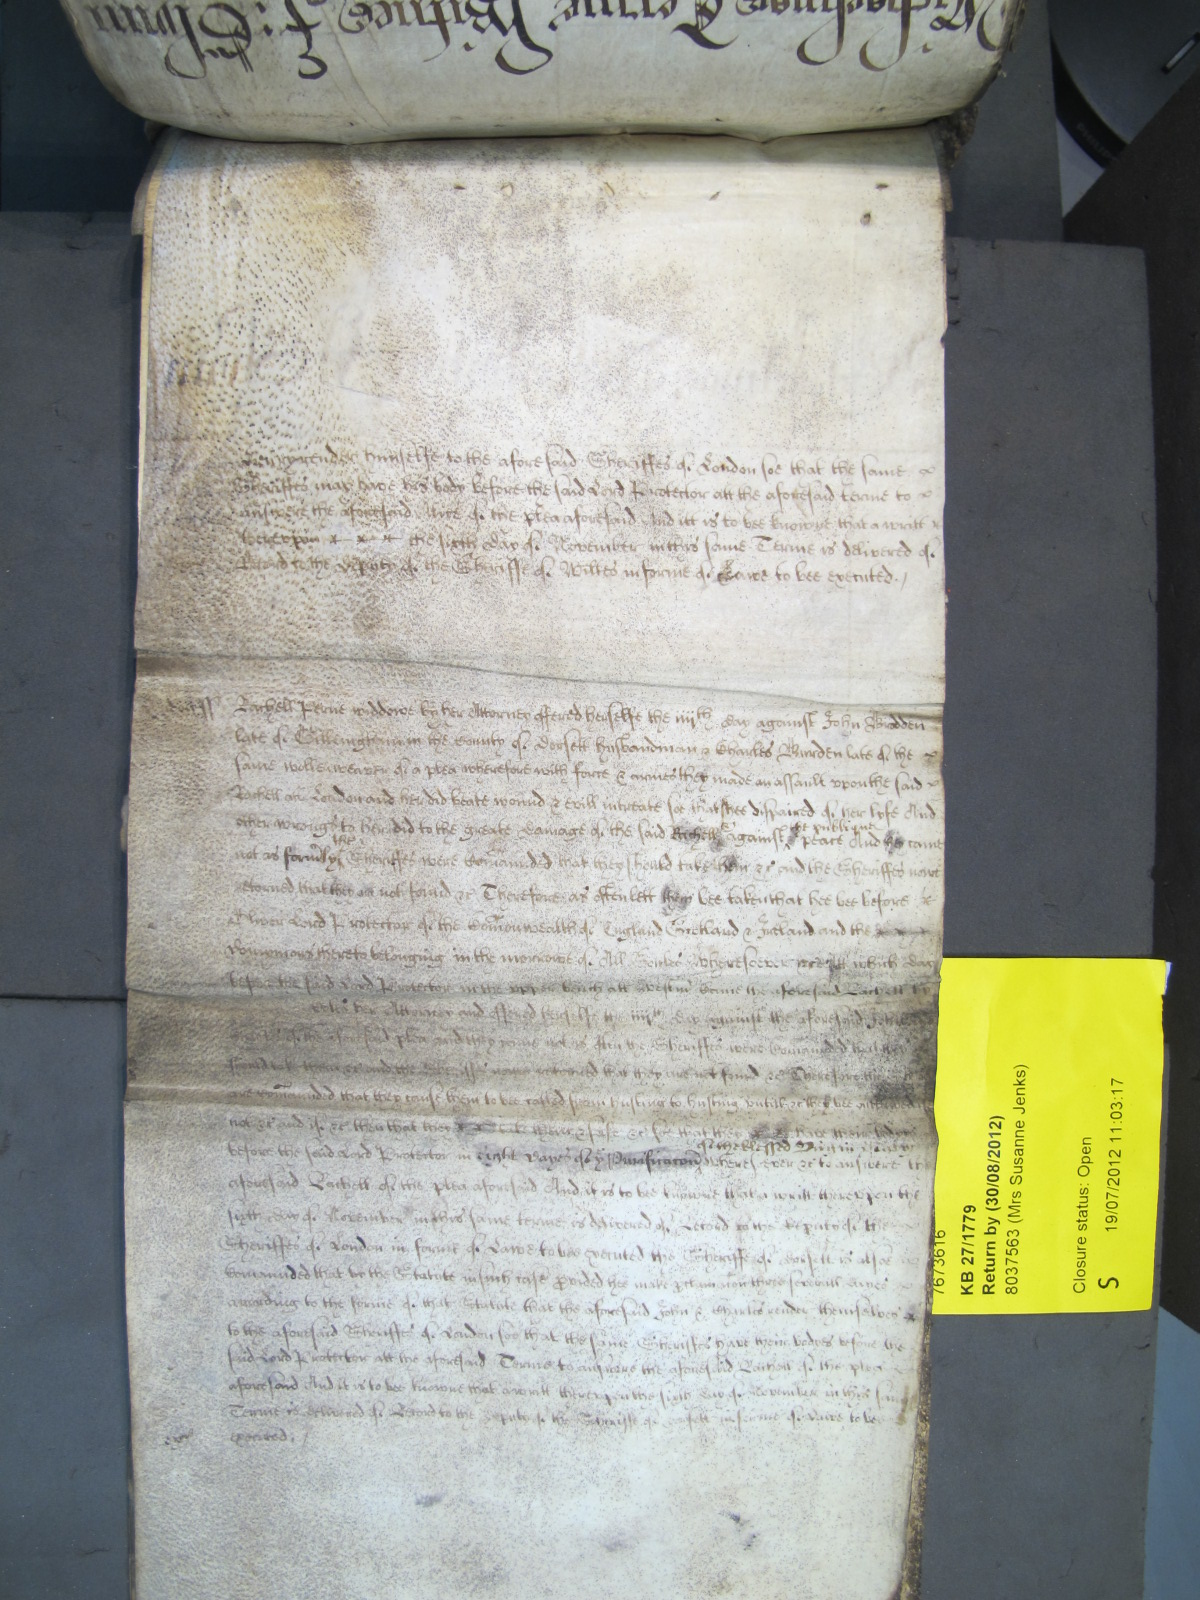 Michaelmas Terme Witnes
Henry render himselfe to the aforesaid Sheriffes of London soe that the same
Sheriffes may have his body before the said Lord Protector att the aforesaid terme to
answere the aforesaid Alice of the plea aforesaid And itt is to bee knowne that a writt
thereupon the sixth day of November in this same Terme is delivered of
Record to the deputy of the Sheriffe of Wiltes in forme of Lawe to bee executed.
Rachell Perne widdowe by her Attorney offered herselfe the iiijth day against John
late of Gillingham in the County of Dorsett husbandman & Charles Burden late of the
same wollenweaver of a plea wherefore with force & armes they made an assault upon the said
Rachell att London and her did beate wound & evill intreate soe that shee dispaired of her lyfe And
other wrongs to her did to the greate damage of the said Rachell against the publique peace And they came
not as formerly the Sheriffes were Comanded that they should take them &c and the Sheriffes nowe
retorned that they are not found &c Therefore as often lett them bee taken that hee bee before
Oliver Lord Protector of the Comonwealth of England Scotland & Ireland and the
Dominions thereto belonging in the morrowe of All Soules wheresoever &c att which day
before the said Lord Protector in the upper bench att Westmr came the aforesaid Rachell by
her Attorney and offered herselfe the iiijth day against the aforesaid John
Charles of the aforesaid plea and they came not as the Sheriffes were Comanded that they
should take them &c and the Sheriffes nowe retorned that they are not found &c Therefore the
are comanded that they cause them to bee called from husting to husting untill &c they bee outlawed if
not &c and if &c then that they take them & safe &c soe that they have their bodyes
before the said Lord Protector in eight dayes of ye Purificacon of the blessed Virgin Mary wheresoever &c to answere the
aforesaid Rachell of the plea aforesaid And it is to bee knowne that a writt thereupon the
sixth day of November in this same terme is delivered of Record to the deputy of the
Sheriffes of London in forme of Lawe to bee executed the Sheriffe of Dorsett is alsoe
Comanded that by the Statute in such case provided hee make proclamacon three severall dayes
according to the forme of that Statute that the aforesaid John & Charles render themselves
to the aforesaid Sheriffes of London soe that the same Sheriffes have their bodyes before the
said Lord Protector att the aforesaid Terme to answere the aforesaid Rachell of the plea
aforesaid And it is to bee knowne that a writt thereupon the sixth day of November in this same
Terme is delivered of Record to the deputy of the Sheriffe of Dorsett in forme of Lawe to bee
executed.
7673616
KB 27/1779
Return by (30/08/2012)
8037563 (Mrs Susanne Jenks)
Closure status: Open
S 19/07/2012 11:03:17